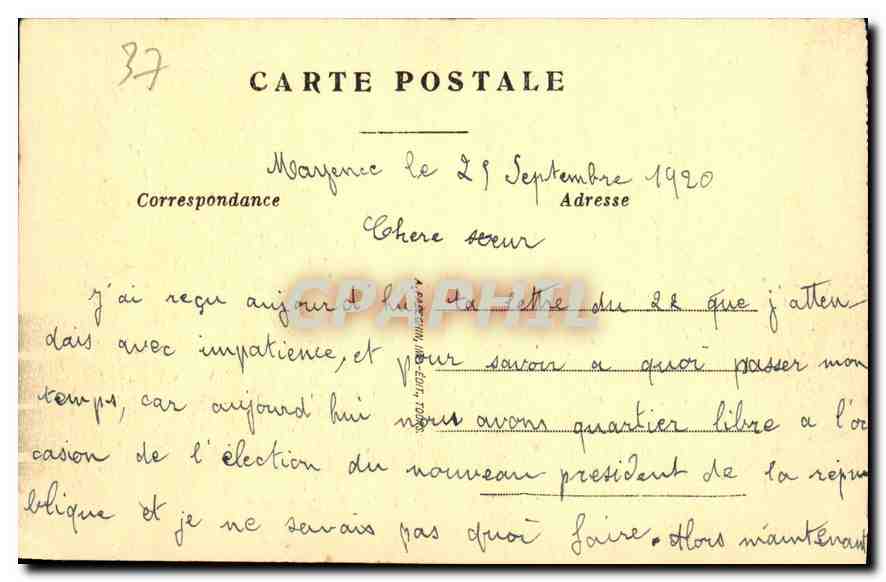 37
CARTE POSTALE
Mayence le 25 Septembre 1920
Correspondance
Adresse
Chere sœur
J'ai reçu aujourd'hui ta lettre du 22 que j'atten-
dais avec impatience, et pour savoir a quoi passer mon
temps, car aujourd'hui nous avons quartier libre a l'oc
casion de l'élection du nouveau president de la répu
blique et je ne savais pas quoi faire. Alors maintenant
CPAPHIL
IMP.-ÉDIT., TOURS.